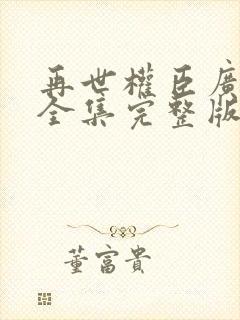 再世權臣廣
全集完整版
董富貴